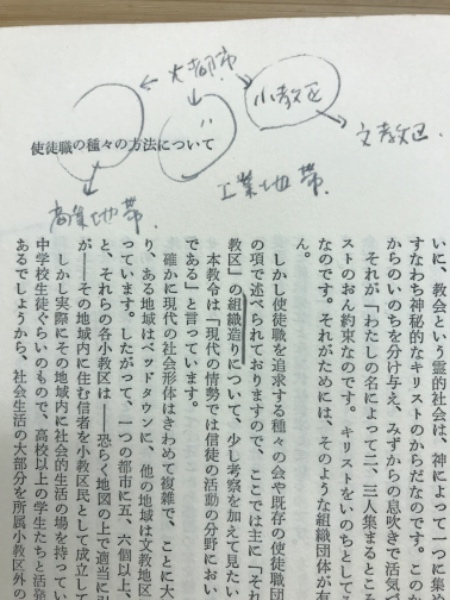 大都市
小教区
文教区.
〃
工業地帯.
商業地帯.
使徒職の種々の方法について
いに、教会という霊的社会は、神によって一つに集め
すなわち神秘的なキリストのからだなのです。このか
からのいのちを分け与え、みずからの息吹きで活気で
それが「わたしの名によって二、三人集まるところ
ストのおん約束なのです。キリストをいのちとして
なのです。それがためには、そのような組織団体が有
ん。
しかし使徒職を追求する種々の会や既存の使徒職団
の項で述べられておりますので、ここでは主に「それ
教区」の組織造りについて、少し考察を加えて見たい
本教令は「現代の情勢では信徒の活動の分野におい
である」と言っています。
確かに現代の社会形体はきわめて複雑で、ことに大
り、ある地域はベッドタウンに、他の地域は文教地区
っています。したがって、一つの都市に五、六個以上、
と、それらの各小教区は――恐らく地図の上で適当に
が――その地域内に住む信者を小教区民として成立して
しかし実際にその地域内に社会的生活の場を持ってい
中学校生徒ぐらいのもので、高校以上の学生たちと活発
あるでしょうから、社会生活の大部分を所属小教区外の